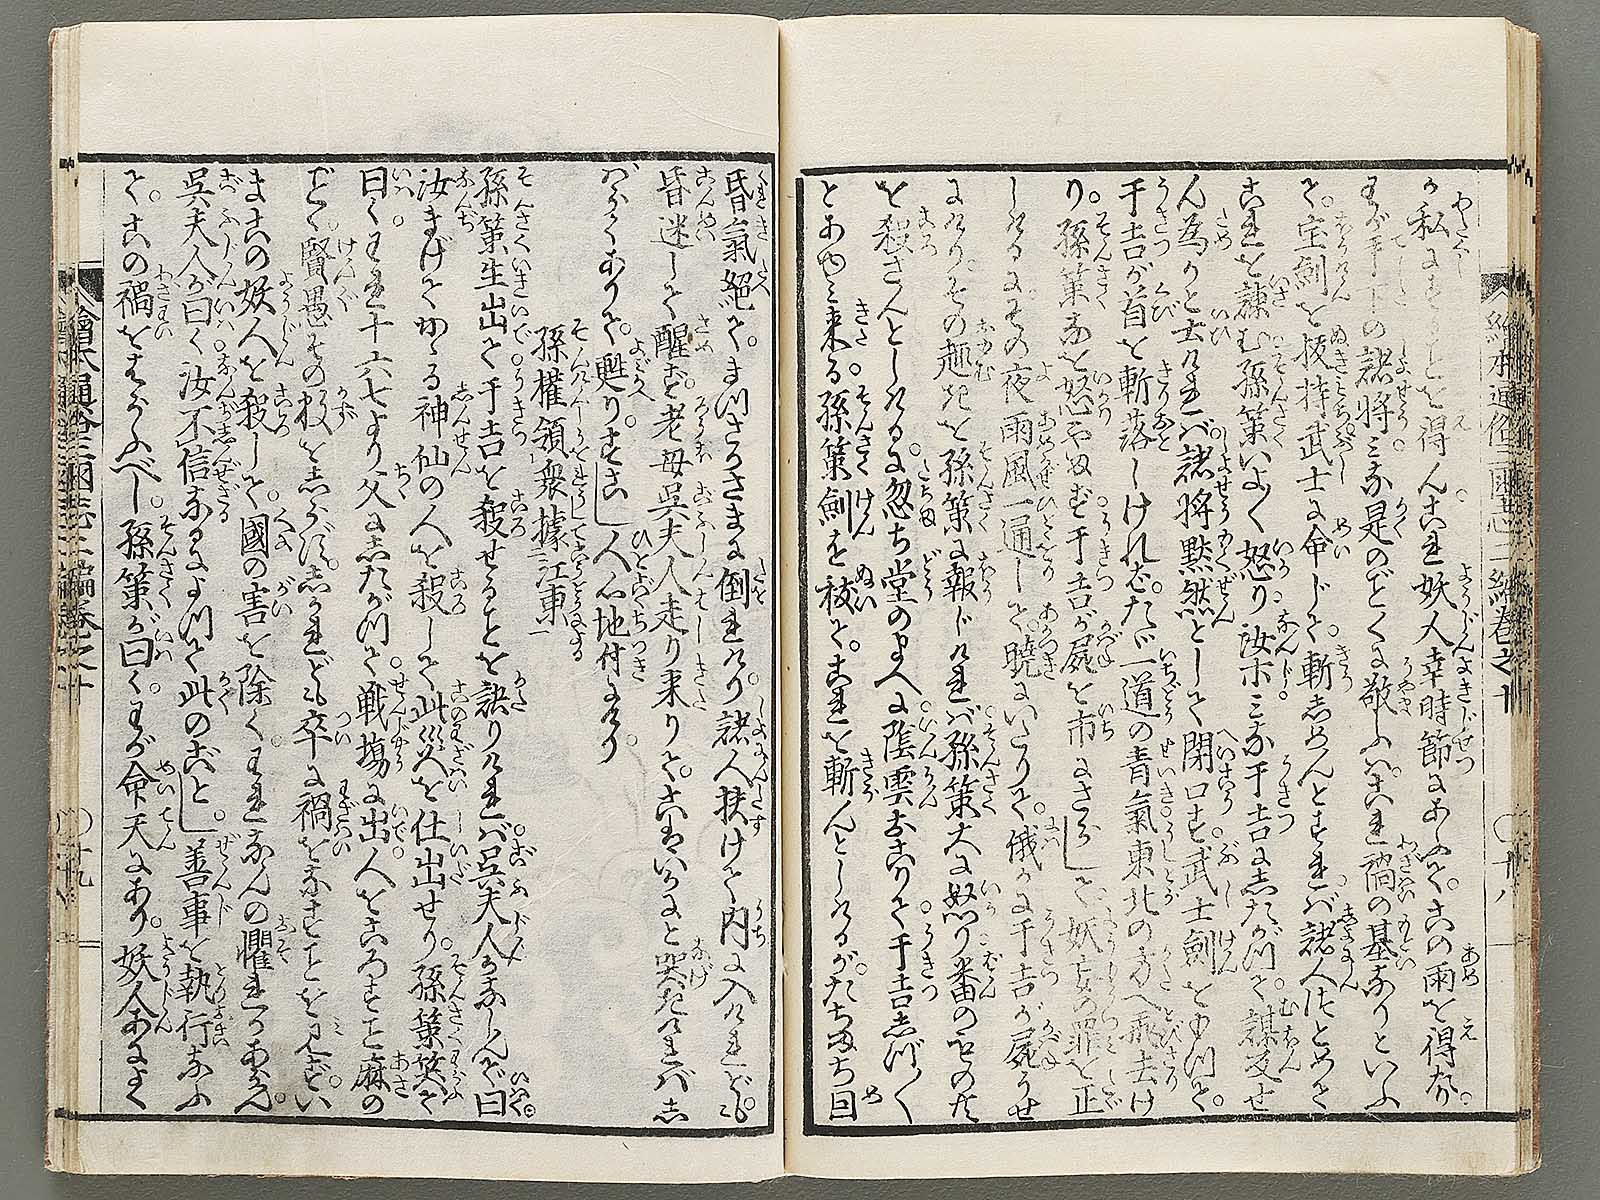 私にすることを得んこれ妖人幸時節にあふて。この雨を得たり。
わが手下の諸將みな是のごとくに敬ふハ。これ禍の基なりといふ
て。宝劍を拔持武士に命じて。斬しめんとすれバ。諸人はとめて
これを諫む孫策いよ〳〵怒り。汝ホみな于吉にしたがつて。謀反せ
ん為かと云けれバ。諸將黙然として閉口す武士劍をもつて。
于吉が首を斬落しければ。たゞ一道の青氣東北の方へ飛去け
り。孫策なを怒やまず于吉が屍を市にさらして。妖妄の罪を正
しけるにその夜雨風一通して。曉にいたりて。俄に于吉が屍うせ
にけりその趣を孫策に報じけれバ孫策大に怒り番のものを
を殺さんとしける。に忽ち堂のまへに陰雲おこりて于吉しづ〳〵
とあゆミ来る孫策劍を拔て。これを斬んとしけるが。たちまち目
昏氣絶て。まつさかさまに倒れけり諸人扶けて内に入けれども
昏迷して醒ず。老母呉夫人走り来りて。こはいかにと哭きけれバし
バらくありて。甦りすこし人心地付にけり。
孫權領衆據江東
孫策生出て于吉を殺せることを語りけれバ。呉夫人かなしんで曰。
汝まげてかゝる神仙の人を殺して此災を仕出せり。孫策笑て
曰く。われ十六七より父にしたがつて。戦場に出。人をころすこと麻の
ごとく。賢愚その数をしらず。しかれども卒に禍をなすことを見ず。い
まこの妖人を殺して。國の害を除く。われなんの懼れかあらん。
呉夫人が曰く汝不信なるによつて此のごとし。善事を執行なふ
て。この禍をはらふべし。孫策が曰く。わが命天にあり。妖人あによく
繪本通俗三國志二編卷之十
〇十八
〇十九